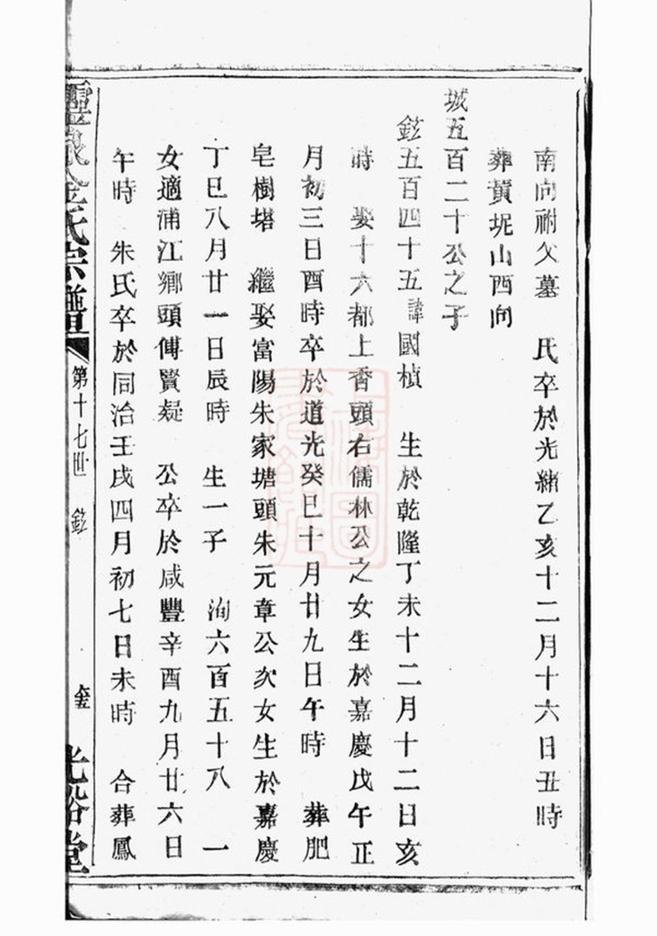 南向祔父墓　氏卒於光緒乙亥十二月十六日丑時
葬黄坭山西向
城五百二十公之子
鉉五百四十五諱國楨　生於乾隆丁未十二月十二日亥
時　娶十六都上香頭右儒林公之女生於嘉慶戊午正
月初三日酉時卒於道光癸巳十月廿九日午時　葬肥
皂樹塔　繼娶富陽朱家塘頭朱元章公次女生於嘉慶
丁巳八月廿一日辰時　生一子　洵六百五十八　一
女適浦江鄉頭傅賢疑　公卒於咸豐辛酉九月廿六日
午時　朱氏卒於同治壬戌四月初七日未時　合葬鳳
靈泉金氏宗譜　第十七世　鉉　光裕堂